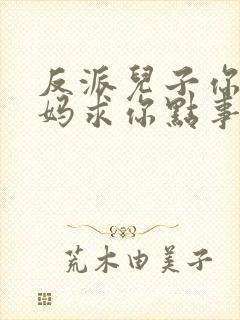 反派兒子你
妈求你點事
荒木由美子